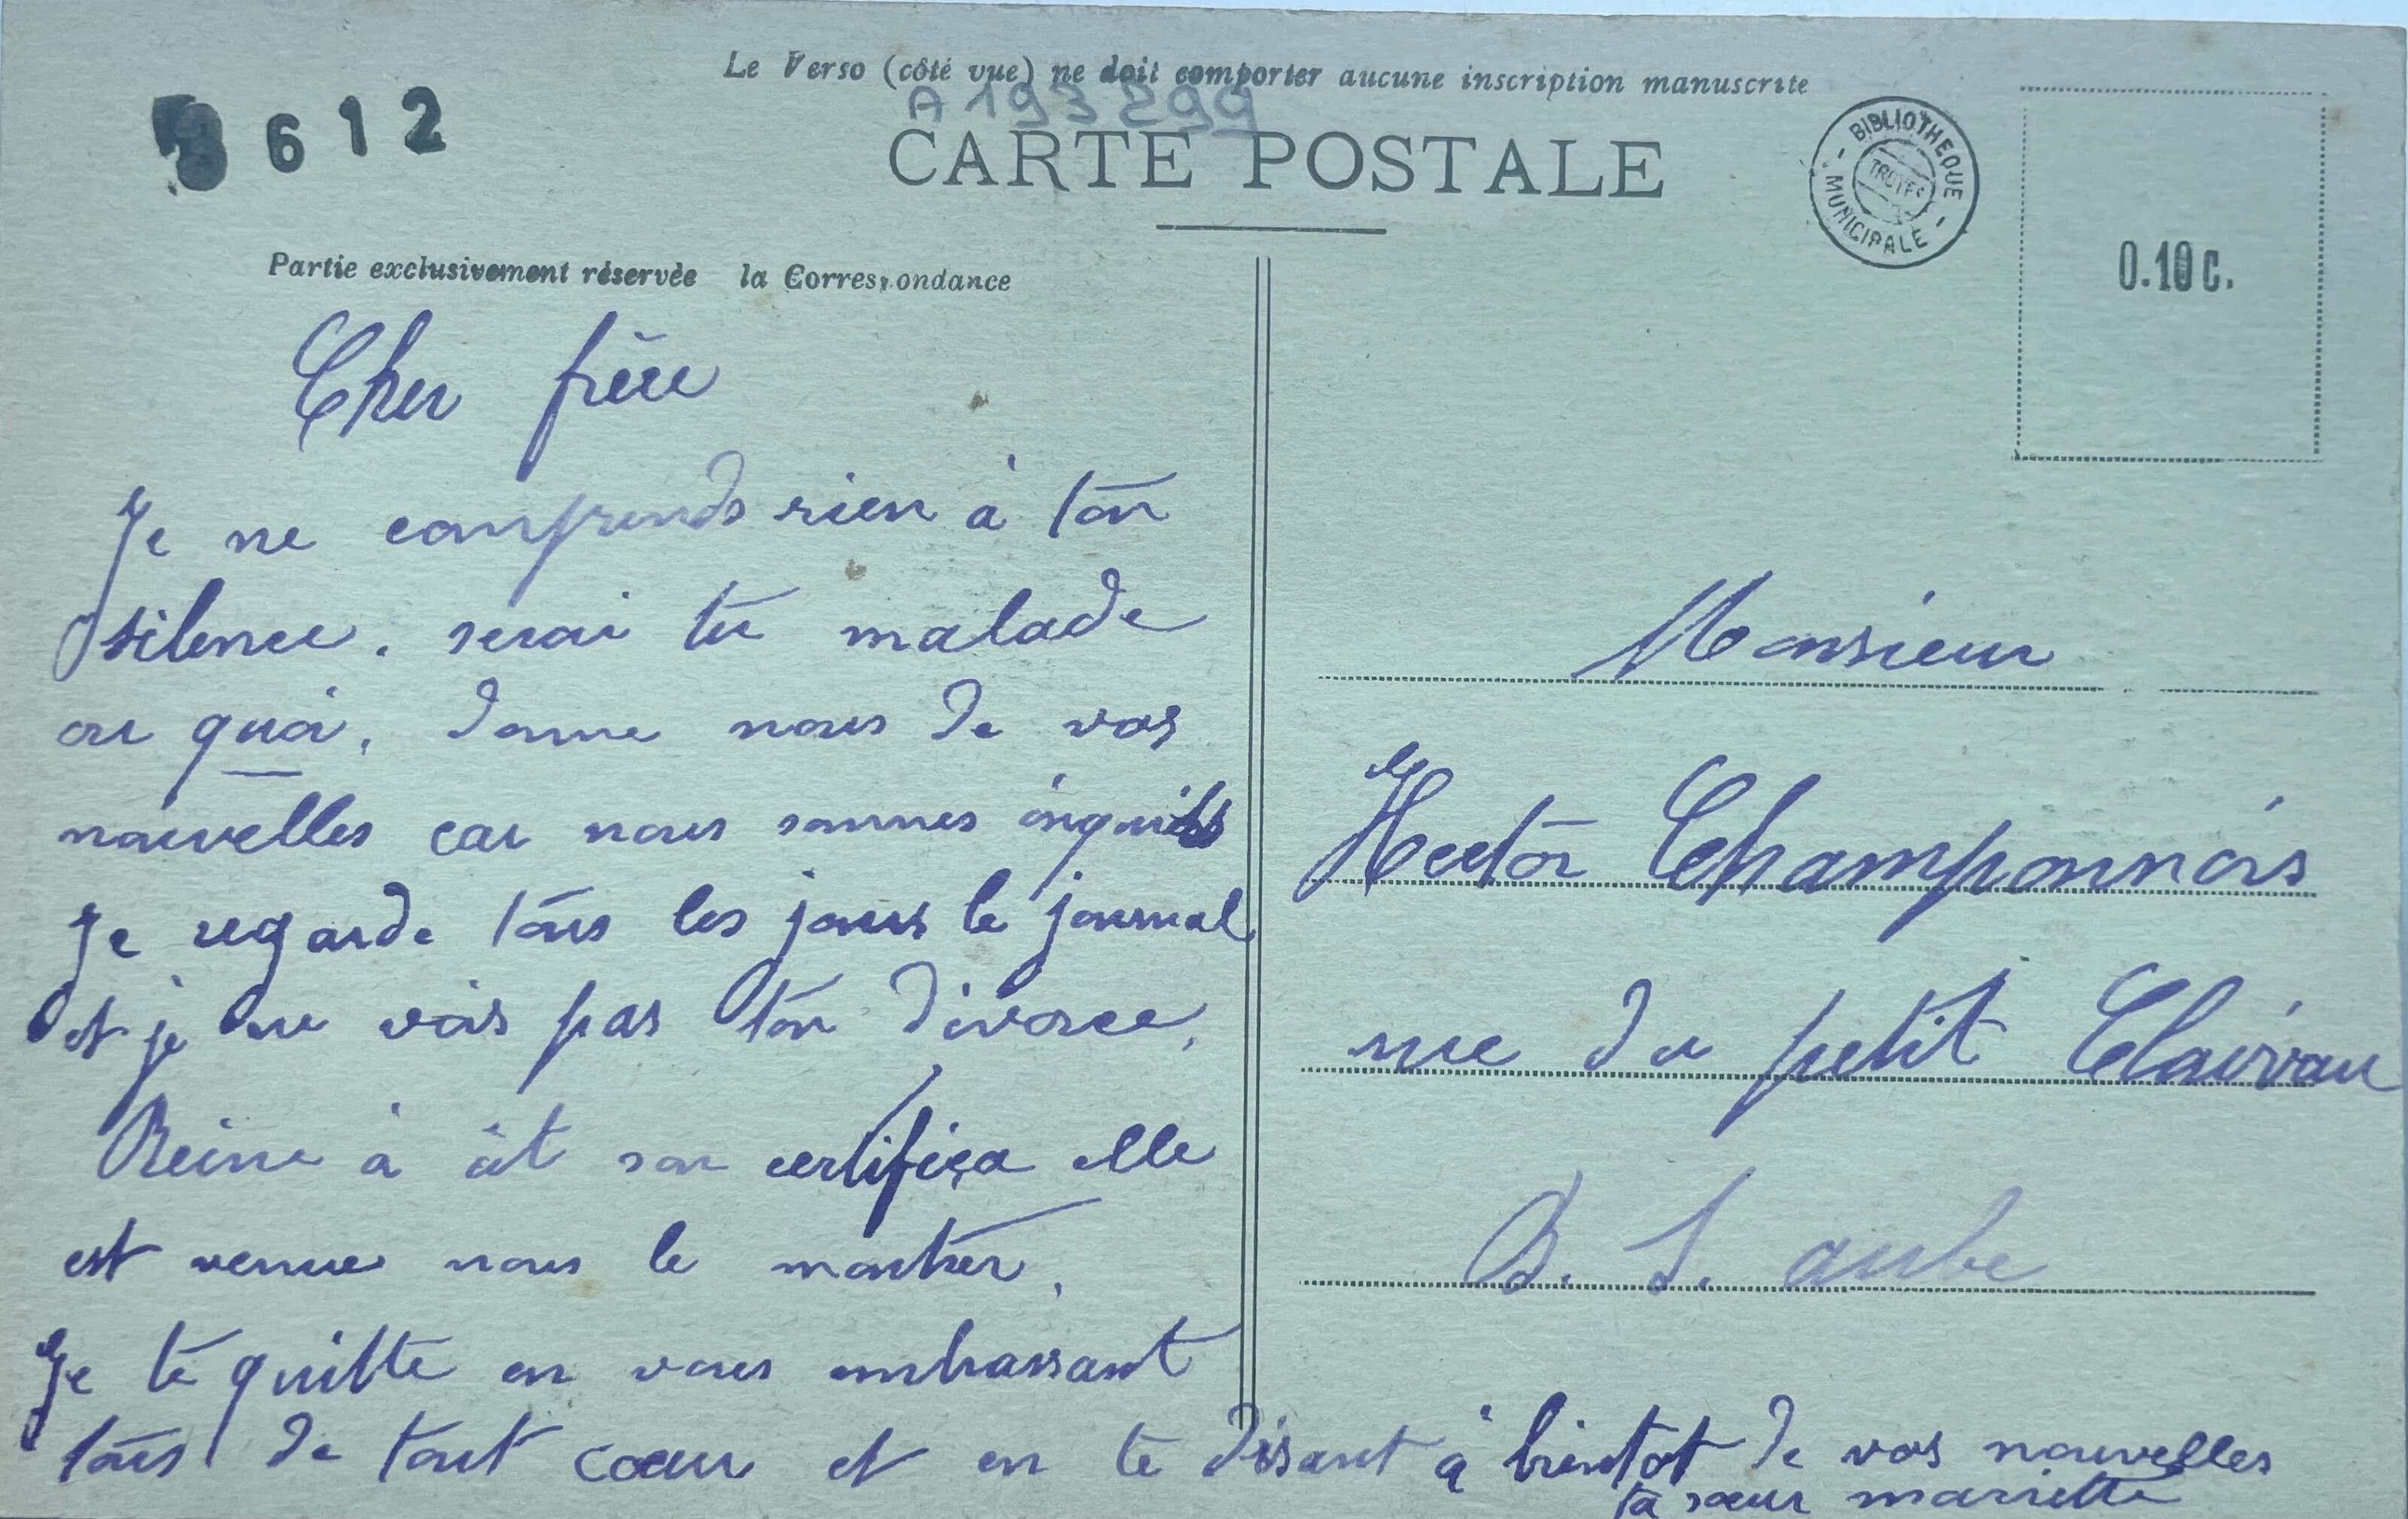 Le Verso (côté vue) ne doit comporter aucune inscription manuscrite
A 193 299
6 1 2
CARTE POSTALE
BIBLIOTHEQUE MUNICIPALE
TROYES
0.10 c.
Partie exclusivement réservée la Correspondance
Cher frère
Je ne comprends rien à ton
silence. serai tu malade
ou quoi, donne nous de vos
nouvelles car nous sommes inquiets
Je regarde tous les jours le journal
et je ne vois pas ton divorce,
Reine à út son certifiça elle
est venue nous le montrer,
Je te quitte en vous embrassant
tous de tout coeur et en te disant à bientot de vos nouvelles
ta soeur mariette
Monsieur
Hector Champonnois
rue du petit Clairvau
B. S. aube